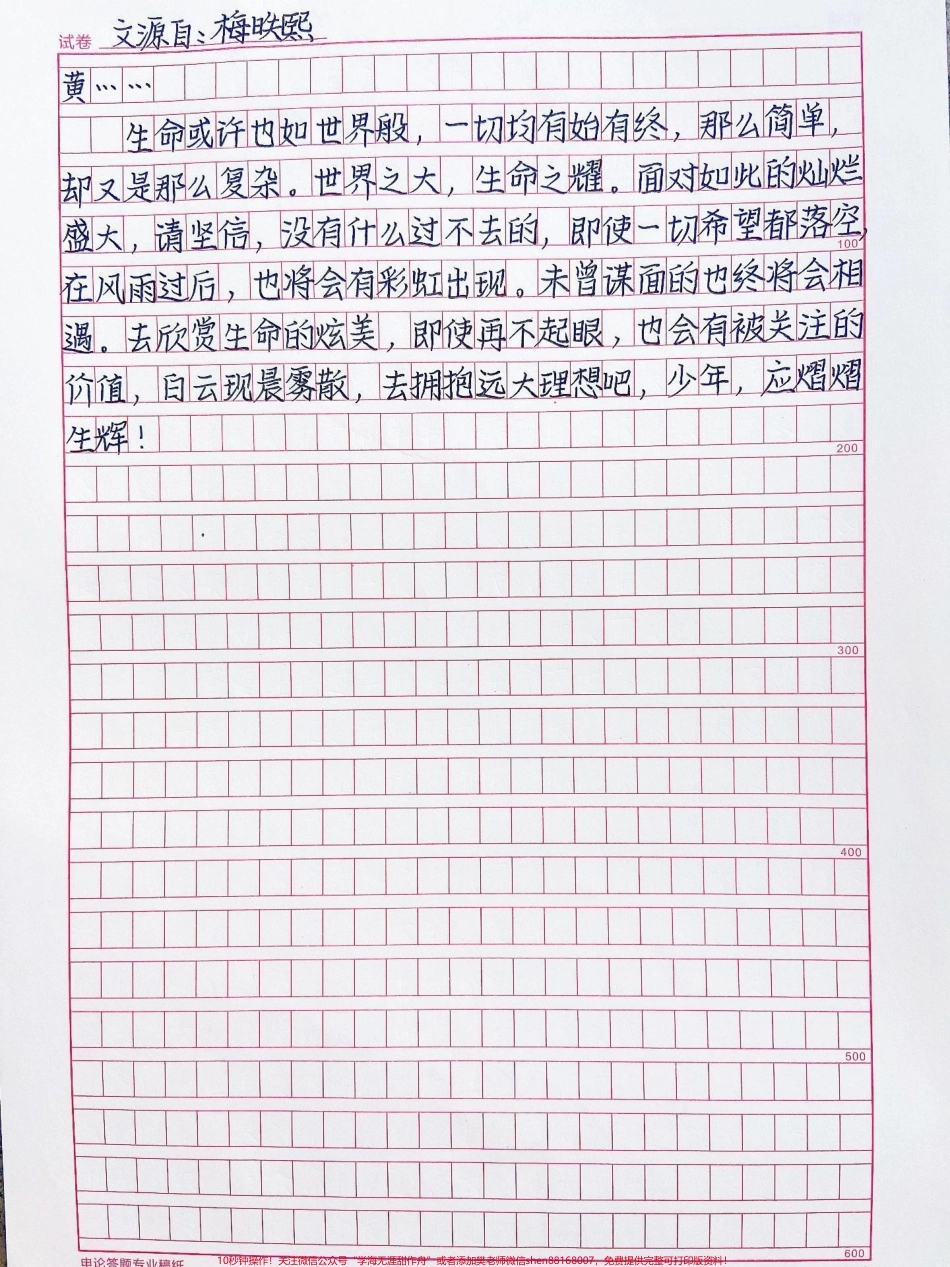 试卷 文源自:梅昳熙
黄……
生命或许也如世界般，一切均有始有终，那么简单，
却又是那么复杂。世界之大，生命之耀。面对如此的灿烂
盛大，请坚信，没有什么过不去的，即使一切希望都落空，
100
在风雨过后，也将会有彩虹出现。未曾谋面的也终将会相
遇。去欣赏生命的炫美，即使再不起眼，也会有被关注的
价值，白云现晨雾散，去拥抱远大理想吧，少年，应熠熠
生辉！
200
300
400
500
600
申论答题专业稿纸
10秒钟操作！关注微信公众号“学海无涯甜作舟”或者添加樊老师微信shen88168007，免费提供完整可打印版资料！